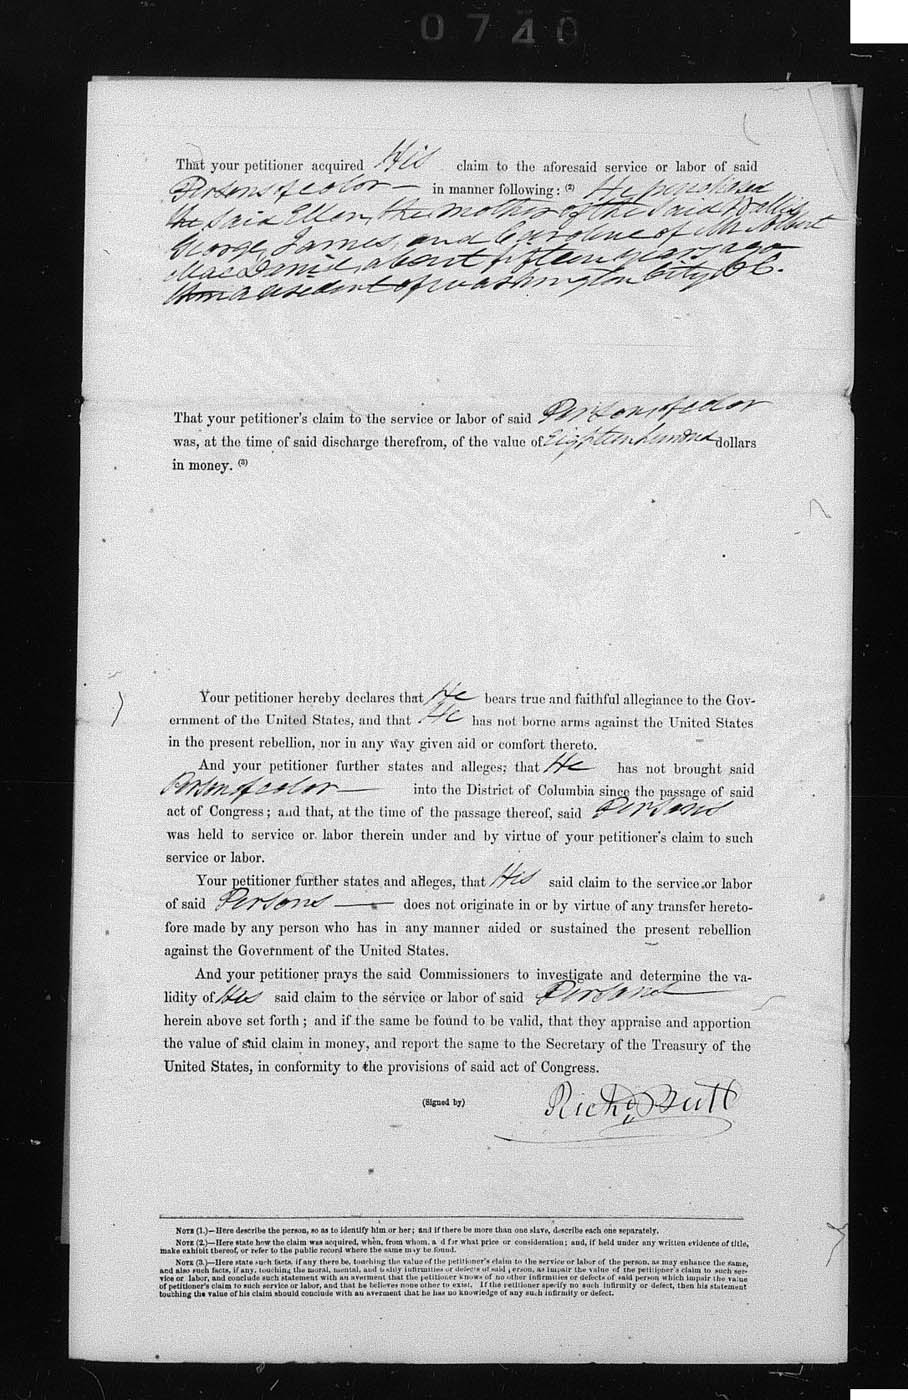 0740
That your petitioner acquired His claim to the aforesaid service or labor of said
Persons of color — in manner following: (2) He purchased
the said Ellen, the mother of the said
George, James, and Caroline of Mr Albert
MacDaniel, about fifteen years ago
a resident of Washington City D.C.
That your petitioner's claim to the service or labor of said Persons of color
was, at the time of said discharge therefrom, of the value of Eighteen hundred dollars
in money. (3)
Your petitioner hereby declares that He bears true and faithful allegiance to the Gov-
ernment of the United States, and that He has not borne arms against the United States
in the present rebellion, nor in any way given aid or comfort thereto.
And your petitioner further states and alleges, that He has not brought said
Persons of color — into the District of Columbia since the passage of said
act of Congress; and that, at the time of the passage thereof, said Persons
was held to service or labor therein under and by virtue of your petitioner's claim to such
service or labor.
Your petitioner further states and alleges, that His said claim to the service or labor
of said Persons — does not originate in or by virtue of any transfer hereto-
fore made by any person who has in any manner aided or sustained the present rebellion
against the Government of the United States.
And your petitioner prays the said Commissioners to investigate and determine the va-
lidity of His said claim to the service or labor of said Persons —
herein above set forth; and if the same be found to be valid, that they appraise and apportion
the value of said claim in money, and report the same to the Secretary of the Treasury of the
United States, in conformity to the provisions of said act of Congress.
(Signed by) Richd Butt
NOTE (1.)—Here describe the person, so as to identify him or her; and if there be more than one slave, describe each one separately.
NOTE (2.)—Here state how the claim was acquired, when, from whom, and for what price or consideration; and, if held under any written evidence of title,
make exhibit thereof, or refer to the public record where the same may be found.
NOTE (3.)—Here state such facts, if any there be, touching the value of the petitioner's claim to the service or labor of the person, as may enhance the same,
and also such facts, if any, touching the moral, mental, and bodily infirmities or defects of said person, as impair the value of the petitioner's claim to such ser-
vice or labor, and conclude such statement with an averment that the petitioner knows of no other infirmities or defects of said person which impair the value
of petitioner's claim to such service or labor, and that he believes none other to exist. If the petitioner specify no such infirmity or defect, then his statement
touching the value of his claim should conclude with an averment that he has no knowledge of any such infirmity or defect.